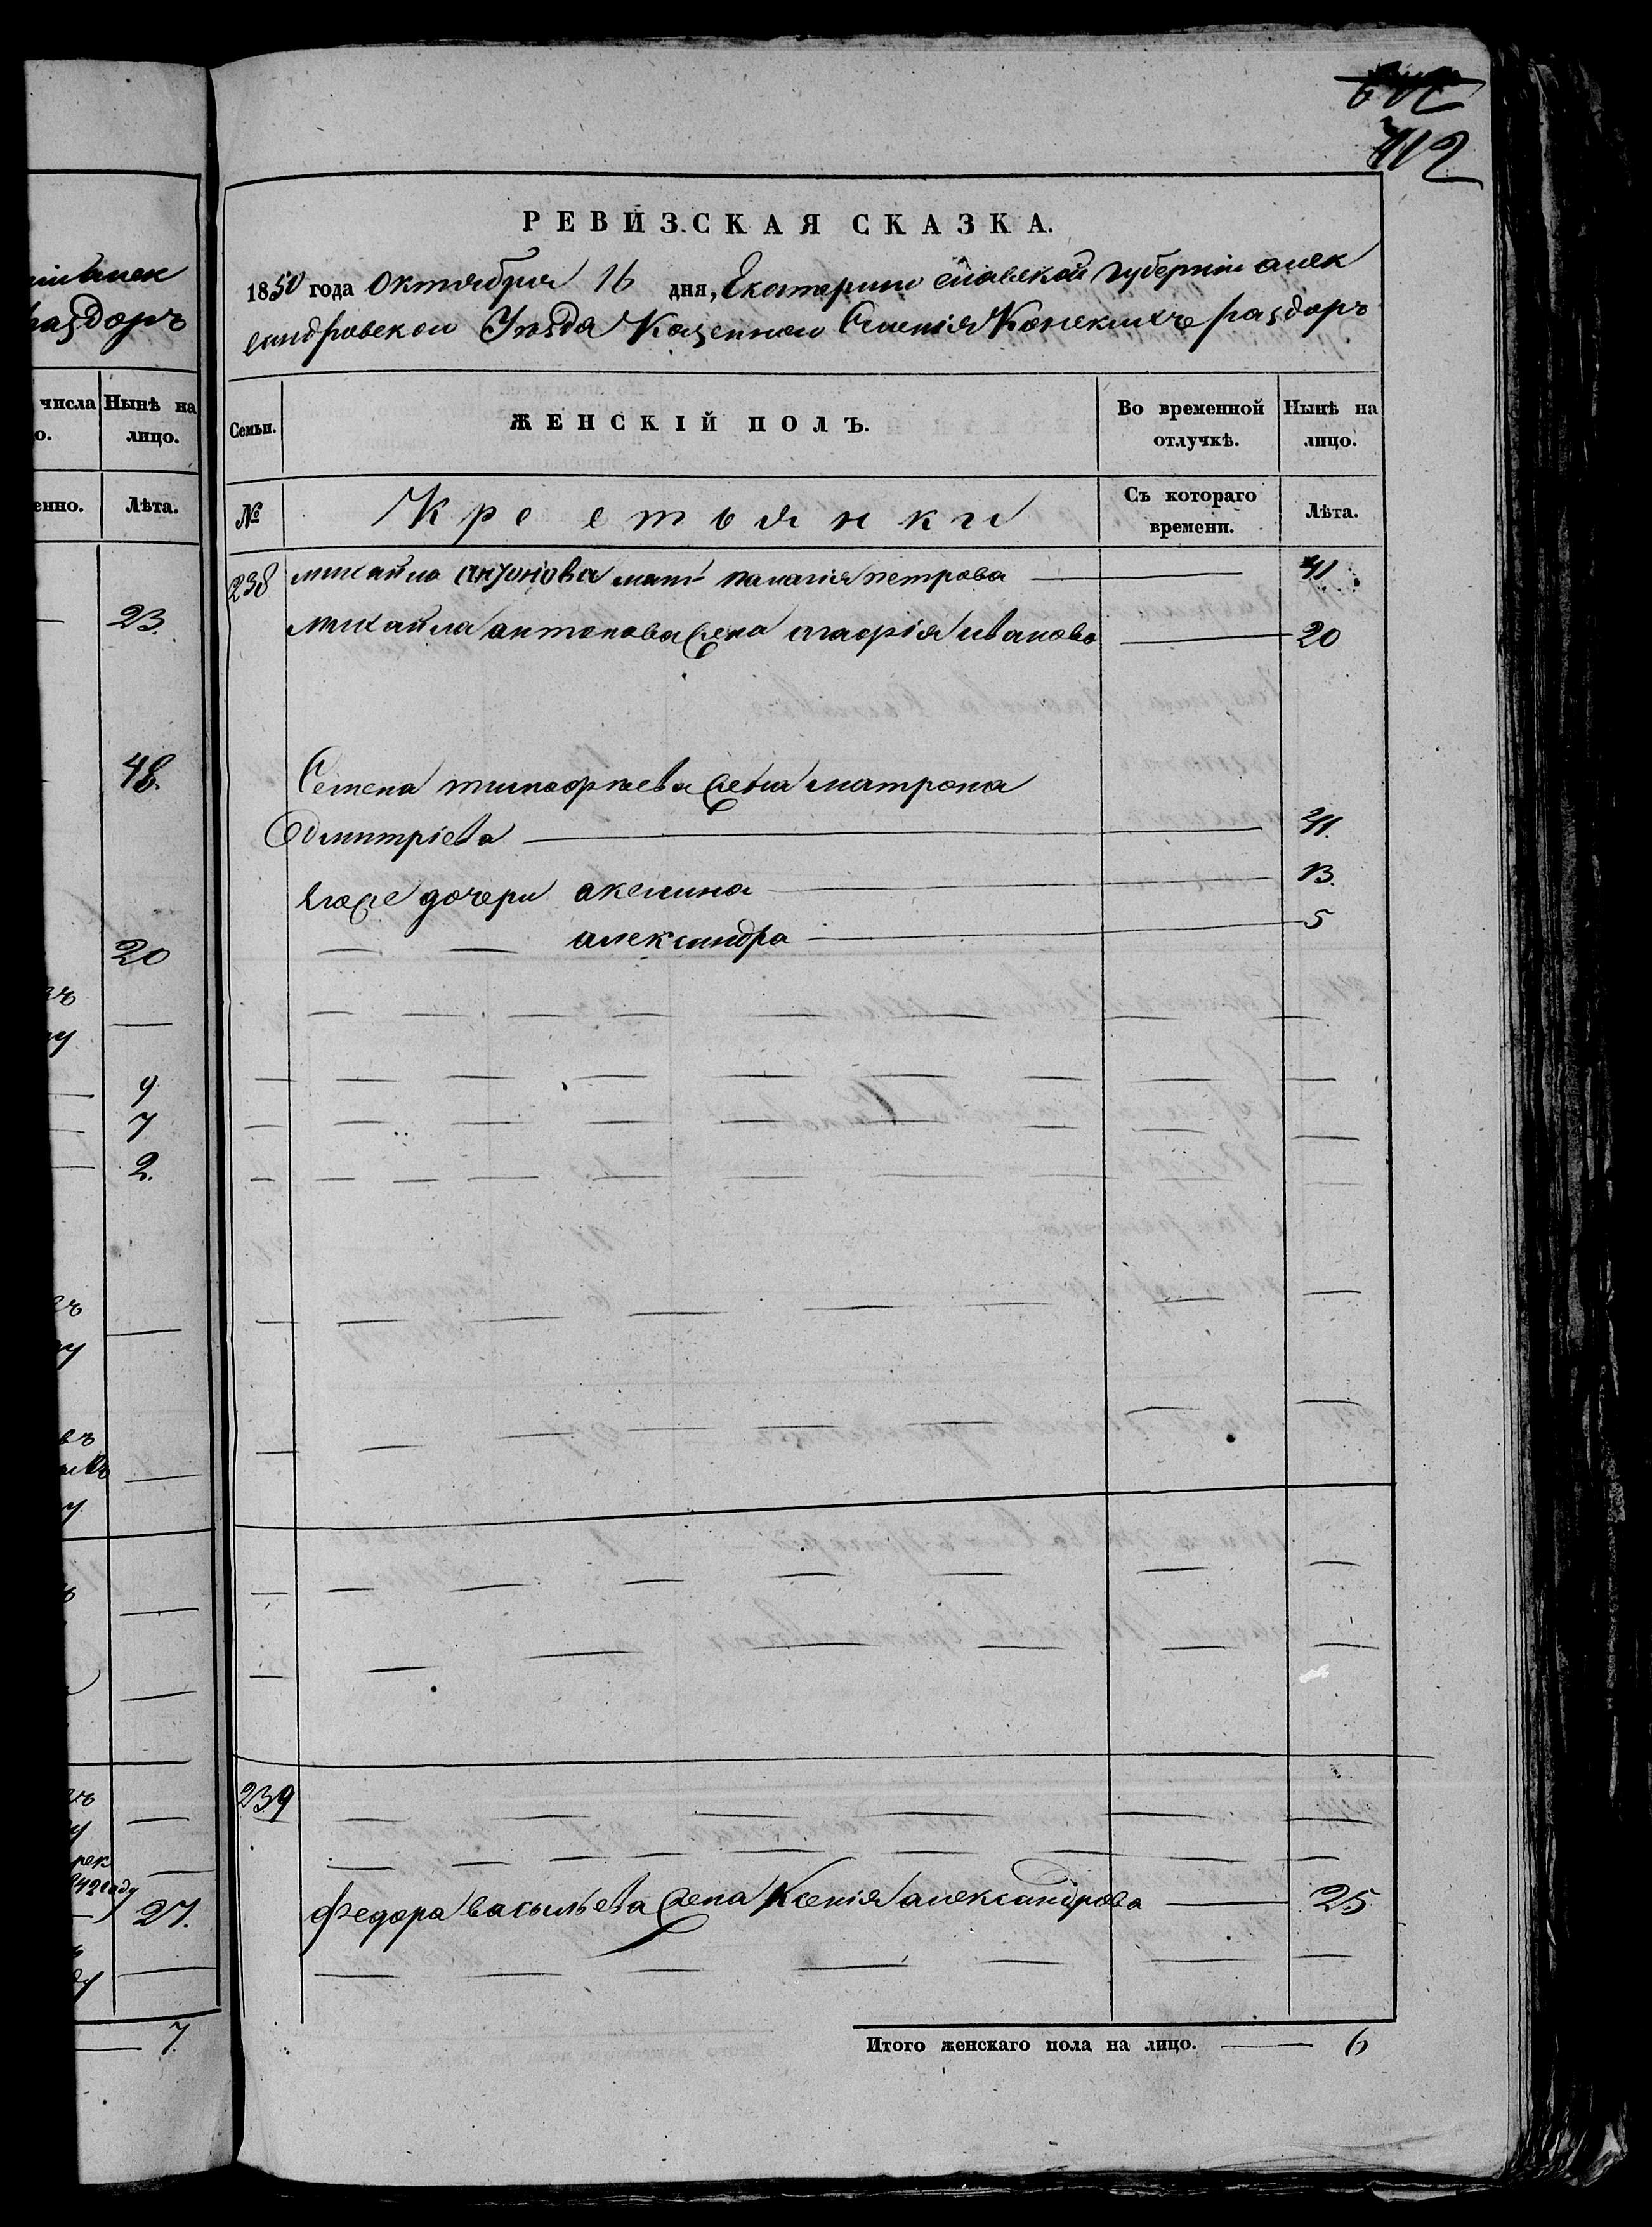 712
РЕВИЗСКАЯ СКАЗКА.
1850 года октября 16 дня, Екатеринославской губернии алек
сандровскои Уѣзда Казеннои Селенiя Конскихъ раздоръ
Семьи. ЖЕНСКІЙ ПОЛЪ. Во временной отлучкѣ. Нынѣ на лицо.
№ Крестьянки Съ котораго времени. Лѣта.
238 михайла антонова мать палагiя петрова 41
михайла антонова жена агафiя иванова 20
Семена тимофѣева жена матрона
димитрiева 41.
Егоже дочери акелина 13.
александра 5
239
федора васильева жена Ксенiя александрова 25
Итого женскаго пола на лицо. 6
алек
раздоръ
числа Нынѣ на
о. лицо.
енно. Лѣта.
23.
48.
20
9
7
2.
27.
7.